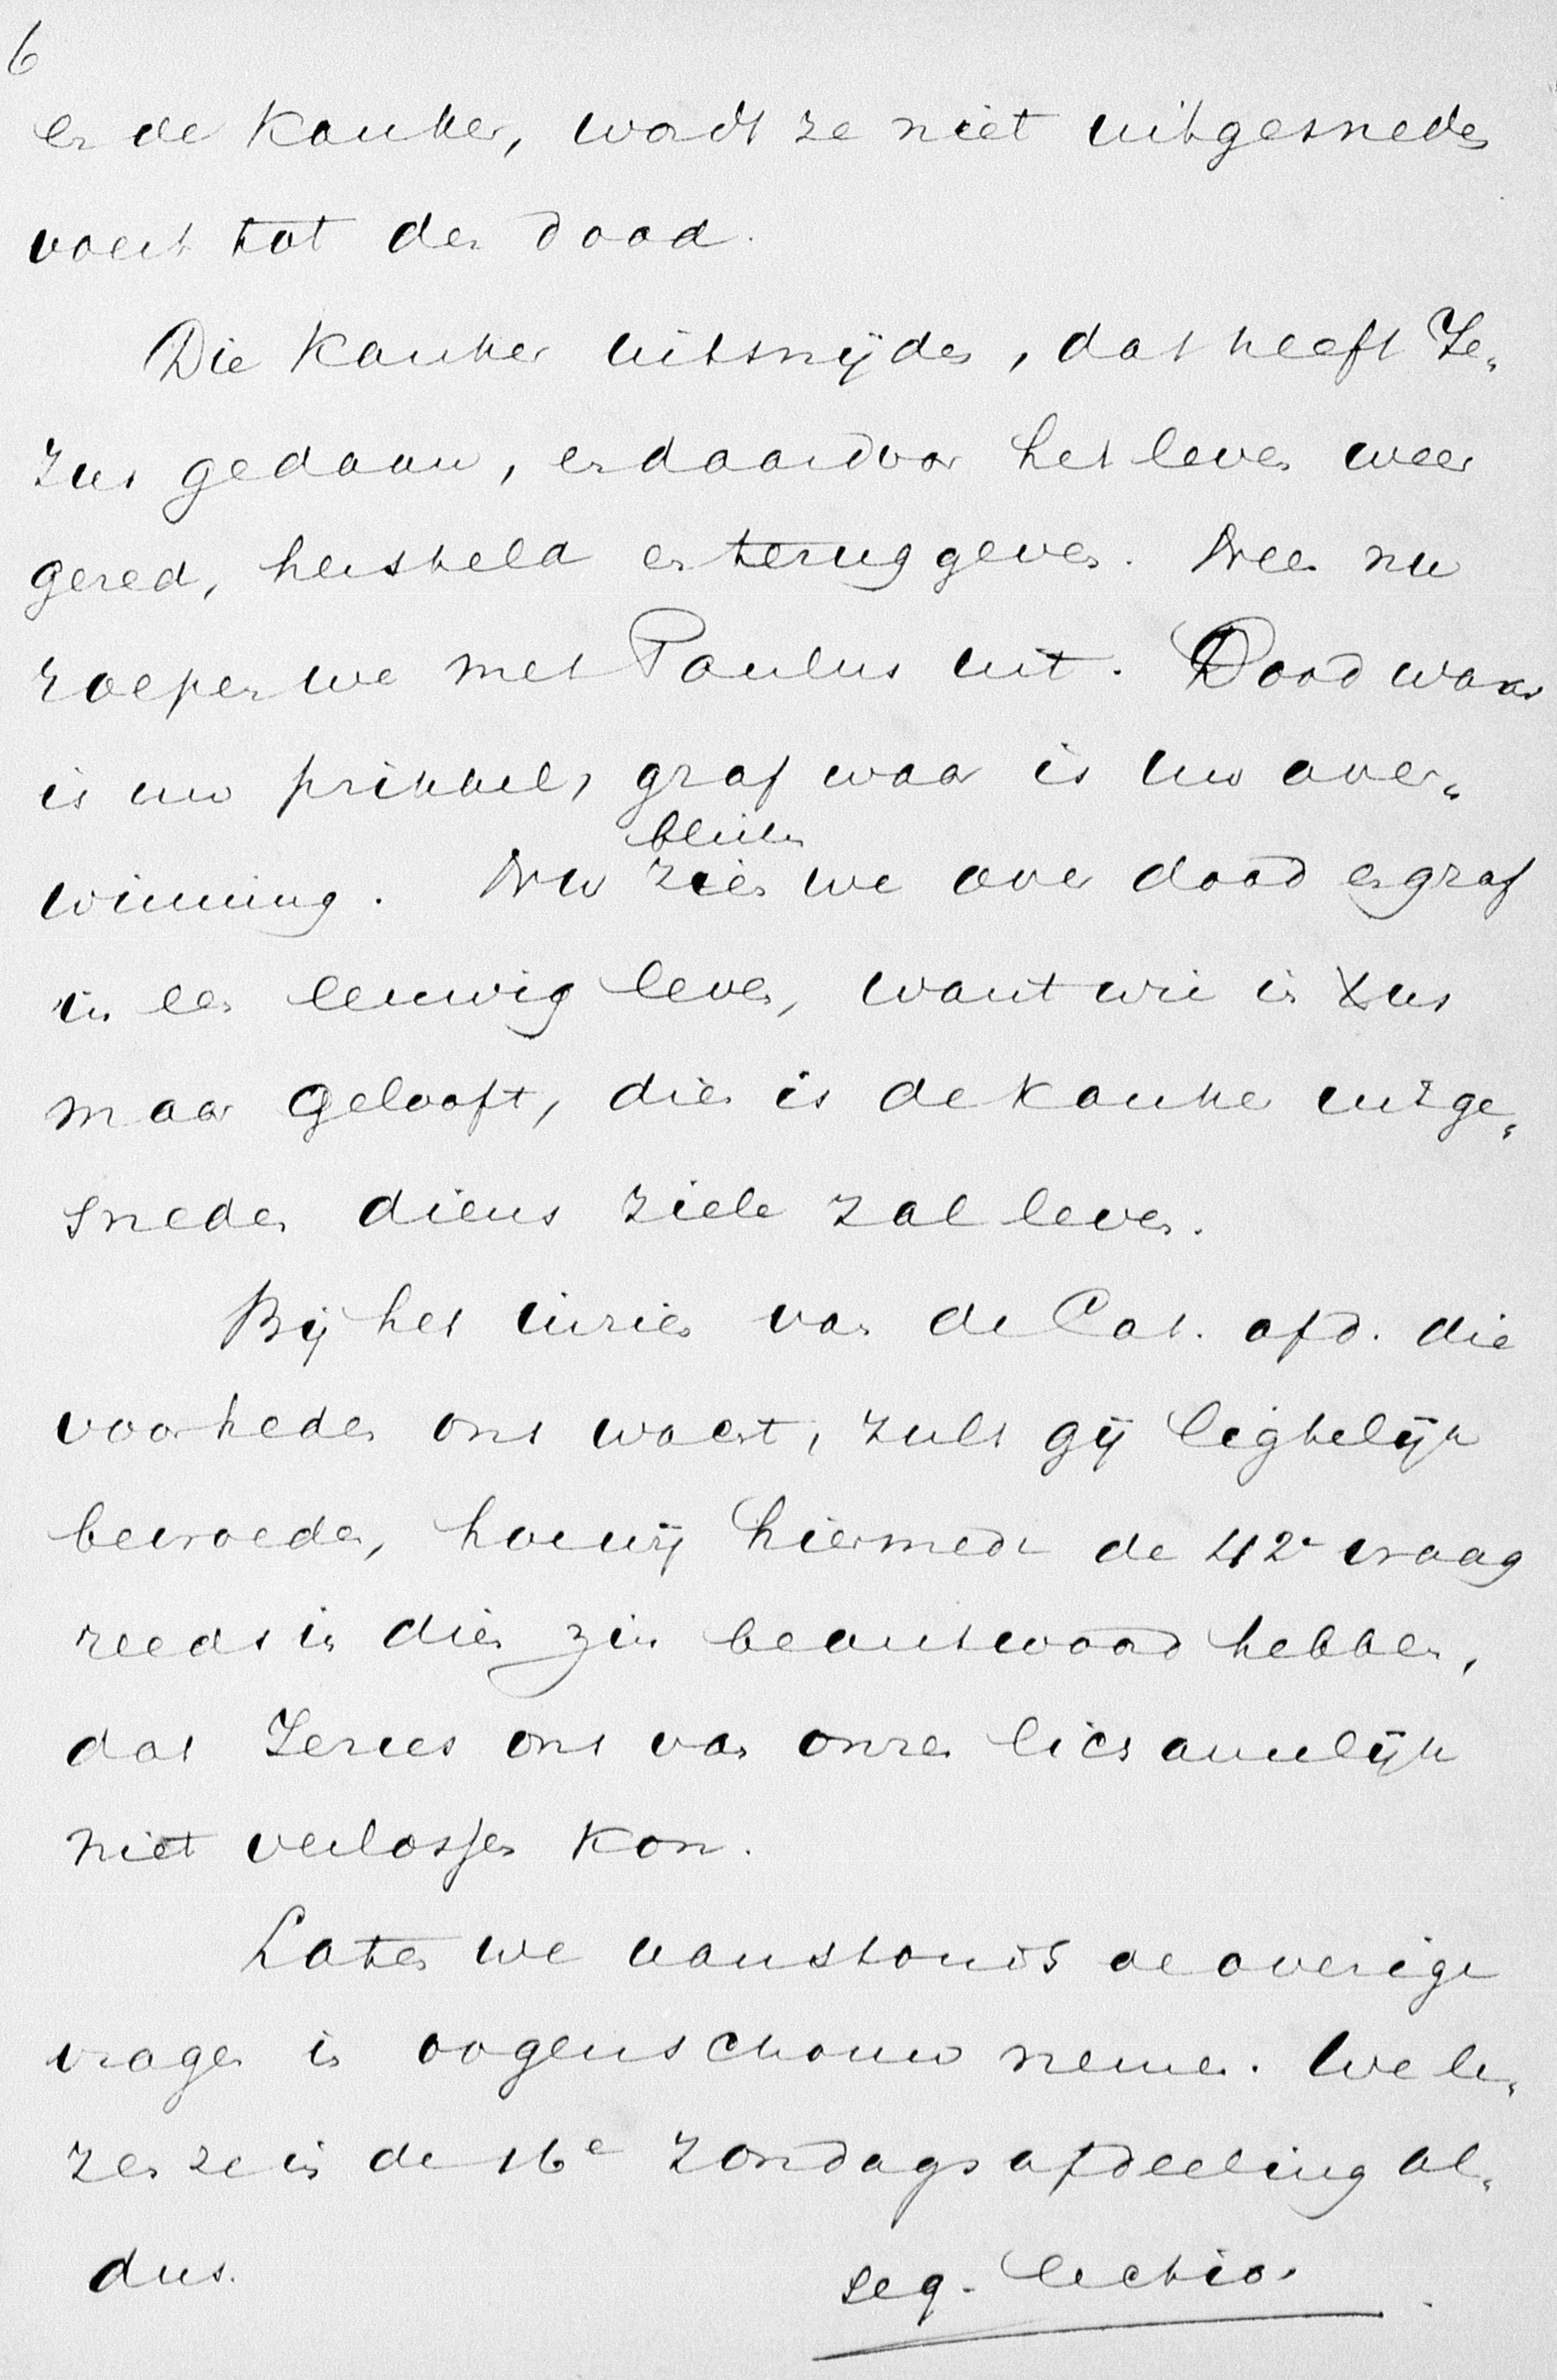 6
en de kanker, wordt ze niet uitgesneden
voert tot den dood.
Die kanker uitsnijden, dat heeft Je-
zus gedaan, en daardoor het leven weer
gered, hersteld en teruggeven. Nee nu
roepen we met Paulus uit. Dood waar
is uw prikkel, graf waar is uw over-
blikken
winning. Nu zien we over dood en graf
in een eeuwig leven, want wie in Xus
maar gelooft, dien is de kanker uitge-
sneden diens ziele zal leven.
Bij het inzien van de Cat. afd. die
voor heden ons wacht, zult gij ligtelijk
bevroeden, hoe wij hiermede de 42e vraag
reeds in dien zin beantwoord hebben,
dat Jezus ons van onzen lichamelijk
niet verlossen kon.
Laten we aanstonds de overige
vragen in oogenschouw nemen. We le-
zen ze in de 16e Zondagsafdeeling al-
dus.
seq. lectio.